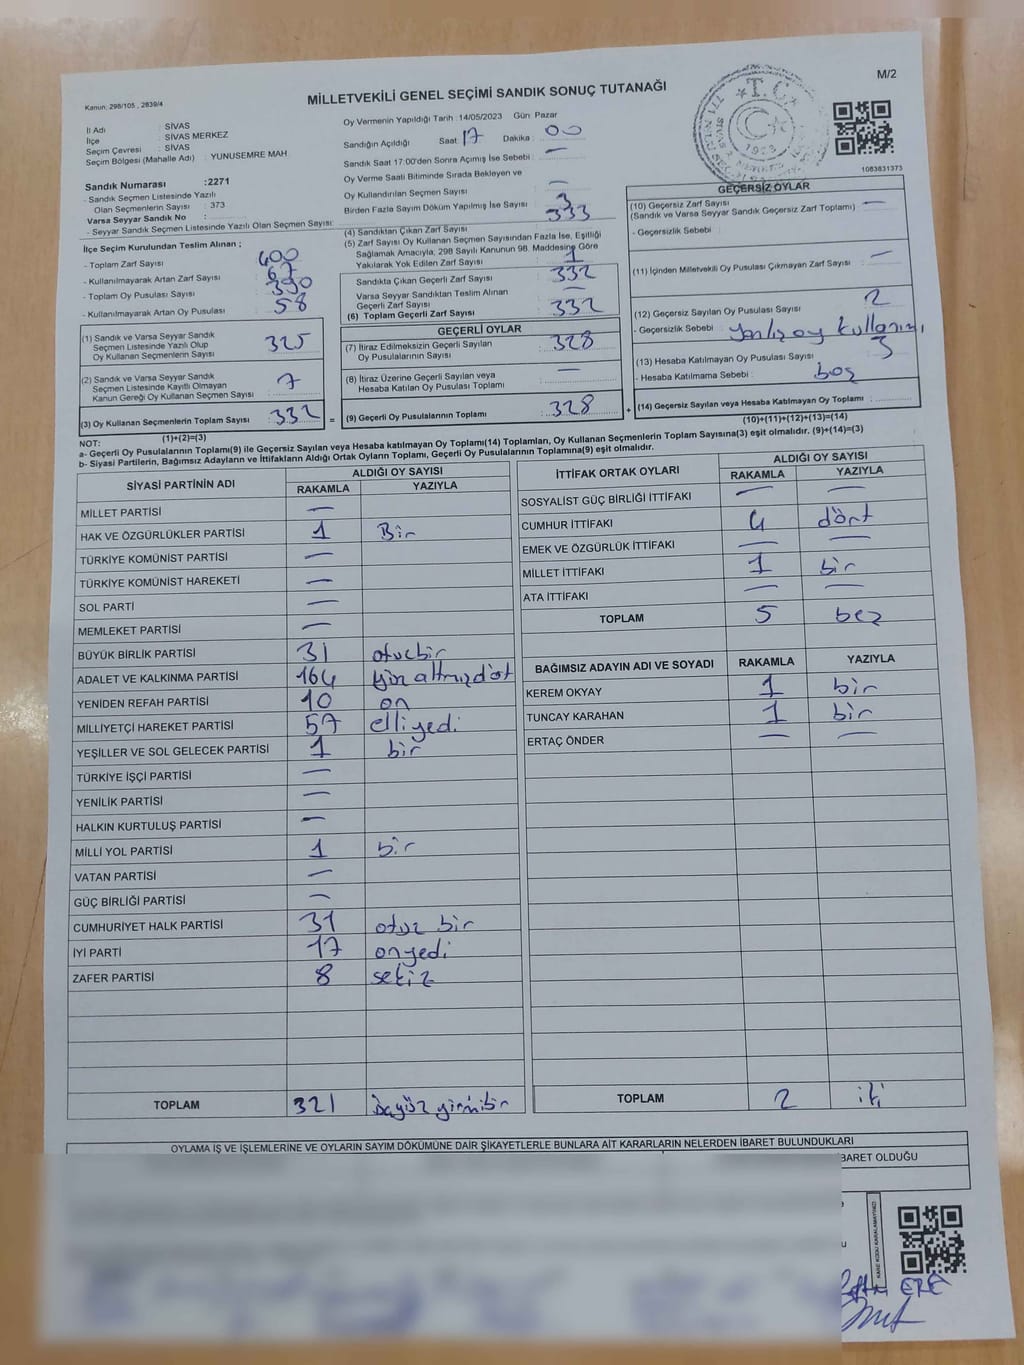 M/2
Kanun: 298/105 , 2839/4
MİLLETVEKİLİ GENEL SEÇİMİ SANDIK SONUÇ TUTANAĞI
İl Adı : SİVAS
İlçe : SİVAS MERKEZ
Seçim Çevresi : SİVAS
Seçim Bölgesi (Mahalle Adı) : YUNUSEMRE MAH
Sandık Numarası :2271
- Sandık Seçmen Listesinde Yazılı
Olan Seçmenlerin Sayısı : 373
Varsa Seyyar Sandık No :
- Seyyar Sandık Seçmen Listesinde Yazılı Olan Seçmen Sayısı:
İlçe Seçim Kurulundan Teslim Alınan ;
- Toplam Zarf Sayısı 400
- Kullanılmayarak Artan Zarf Sayısı 67
- Toplam Oy Pusulası Sayısı 390
- Kullanılmayarak Artan Oy Pusulası 58
(1) Sandık ve Varsa Seyyar Sandık
Seçmen Listesinde Yazılı Olup
Oy Kullanan Seçmenlerin Sayısı 325
(2) Sandık ve Varsa Seyyar Sandık
Seçmen Listesinde Kayıtlı Olmayan
Kanun Gereği Oy Kullanan Seçmen Sayısı 7
(3) Oy Kullanan Seçmenlerin Toplam Sayısı 332 =
(1)+(2)=(3)
Oy Vermenin Yapıldığı Tarih : 14/05/2023 Gün: Pazar
Sandığın Açıldığı Saat : 17 Dakika : 00
Sandık Saat 17:00'den Sonra Açımış İse Sebebi : —
Oy Verme Saati Bitiminde Sırada Bekleyen ve
Oy Kullandırılan Seçmen Sayısı —
Birden Fazla Sayım Döküm Yapılmış İse Sayısı : 3
(4) Sandıktan Çıkan Zarf Sayısı 333
(5) Zarf Sayısı Oy Kullanan Seçmen Sayısından Fazla İse, Eşitliği
Sağlamak Amacıyla, 298 Sayılı Kanunun 98. Maddesine Göre
Yakılarak Yok Edilen Zarf Sayısı 1
Sandıkta Çıkan Geçerli Zarf Sayısı 332
Varsa Seyyar Sandıktan Teslim Alınan
Geçerli Zarf Sayısı —
(6) Toplam Geçerli Zarf Sayısı : 332
GEÇERLİ OYLAR
(7) İtiraz Edilmeksizin Geçerli Sayılan
Oy Pusulalarının Sayısı : 328
(8) İtiraz Üzerine Geçerli Sayılan veya
Hesaba Katılan Oy Pusulası Toplamı : —
(9) Geçerli Oy Pusulalarının Toplamı : 328 +
T.C.
1923
1083831373
GEÇERSİZ OYLAR
(10) Geçersiz Zarf Sayısı
(Sandık ve Varsa Seyyar Sandık Geçersiz Zarf Toplamı) —
- Geçersizlik Sebebi :
(11) İçinden Milletvekili Oy Pusulası Çıkmayan Zarf Sayısı —
(12) Geçersiz Sayılan Oy Pusulası Sayısı 2
- Geçersizlik Sebebi : yanlış oy kullanımı
(13) Hesaba Katılmayan Oy Pusulası Sayısı
- Hesaba Katılmama Sebebi : boş
(14) Geçersiz Sayılan veya Hesaba Katılmayan Oy Toplamı :
(10)+(11)+(12)+(13)=(14)
NOT:
a- Geçerli Oy Pusulalarının Toplamı(9) ile Geçersiz Sayılan veya Hesaba katılmayan Oy Toplamı(14) Toplamları, Oy Kullanan Seçmenlerin Toplam Sayısına(3) eşit olmalıdır. (9)+(14)=(3)
b- Siyasi Partilerin, Bağımsız Adayların ve İttifakların Aldığı Ortak Oyların Toplamı, Geçerli Oy Pusulalarının Toplamına(9) eşit olmalıdır.
SİYASİ PARTİNİN ADI ALDIĞI OY SAYISI
RAKAMLA YAZIYLA
MİLLET PARTİSİ —
HAK VE ÖZGÜRLÜKLER PARTİSİ 1 Bir
TÜRKİYE KOMÜNİST PARTİSİ —
TÜRKİYE KOMÜNİST HAREKETİ —
SOL PARTİ —
MEMLEKET PARTİSİ —
BÜYÜK BİRLİK PARTİSİ 31 otuzbir
ADALET VE KALKINMA PARTİSİ 164 yüz altmışdört
YENİDEN REFAH PARTİSİ 10 on
MİLLİYETÇİ HAREKET PARTİSİ 57 elliyedi
YEŞİLLER VE SOL GELECEK PARTİSİ 1 bir
TÜRKİYE İŞÇİ PARTİSİ —
YENİLİK PARTİSİ —
HALKIN KURTULUŞ PARTİSİ —
MİLLİ YOL PARTİSİ 1 bir
VATAN PARTİSİ —
GÜÇ BİRLİĞİ PARTİSİ —
CUMHURİYET HALK PARTİSİ 31 otuz bir
İYİ PARTİ 17 onyedi
ZAFER PARTİSİ 8 sekiz
TOPLAM 321 üçyüz yirmibir
İTTİFAK ORTAK OYLARI ALDIĞI OY SAYISI
RAKAMLA YAZIYLA
SOSYALİST GÜÇ BİRLİĞİ İTTİFAKI — —
CUMHUR İTTİFAKI 4 dört
EMEK VE ÖZGÜRLÜK İTTİFAKI — —
MİLLET İTTİFAKI 1 bir
ATA İTTİFAKI — —
TOPLAM 5 beş
BAĞIMSIZ ADAYIN ADI VE SOYADI RAKAMLA YAZIYLA
KEREM OKYAY 1 bir
TUNCAY KARAHAN 1 bir
ERTAÇ ÖNDER — —
TOPLAM 2 iki
OYLAMA İŞ VE İŞLEMLERİNE VE OYLARIN SAYIM DÖKÜMÜNE DAİR ŞİKAYETLERLE BUNLARA AİT KARARLARIN NELERDEN İBARET BULUNDUKLARI
BARET OLDUĞU
KARE KODU KARALAMAYINIZ!